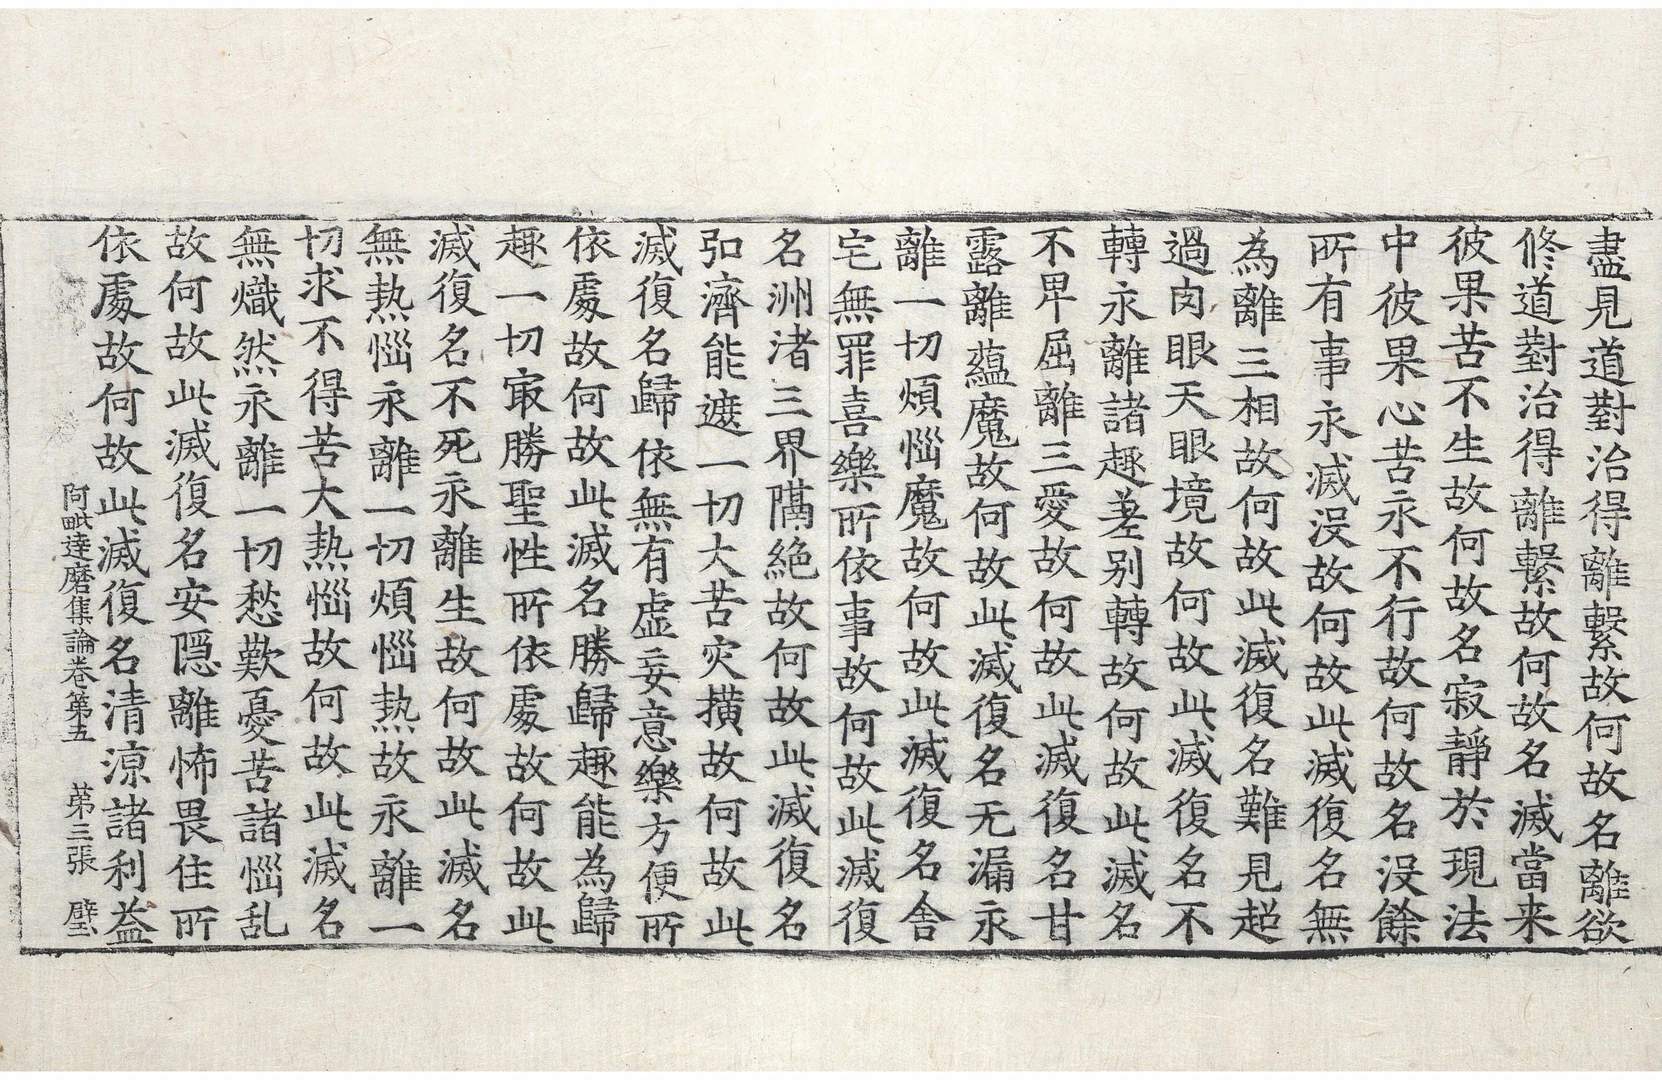 盡見道對治得離繫故何故名離欲
修道對治得離繫故何故名滅當来
彼果苦不生故何故名寂靜於現法
中彼果心苦永不行故何故名沒餘
所有事永滅沒故何故此滅復名無
為離三相故何故此滅復名難見超
過肉眼天眼境故何故此滅復名不
轉永離諸趣差别轉故何故此滅名
不卑屈離三愛故何故此滅復名甘
露離蘊魔故何故此滅復名无漏永
離一切煩惱魔故何故此滅復名舍
宅無罪喜樂所依事故何故此滅復
名洲渚三界隔絶故何故此滅復名
弘濟能遮一切大苦灾横故何故此
滅復名歸依無有虚妄意樂方便所
依處故何故此滅名勝歸趣能為歸
趣一切㝡勝聖性所依處故何故此
滅復名不死永離生故何故此滅名
無熱惱永離一切煩惱熱故永離一
切求不得苦大熱惱故何故此滅名
無熾然永離一切愁歎憂苦諸惱乱
故何故此滅復名安隱離怖畏住所
依處故何故此滅復名清涼諸利益
阿毗達磨集論卷第五 第三張 璧